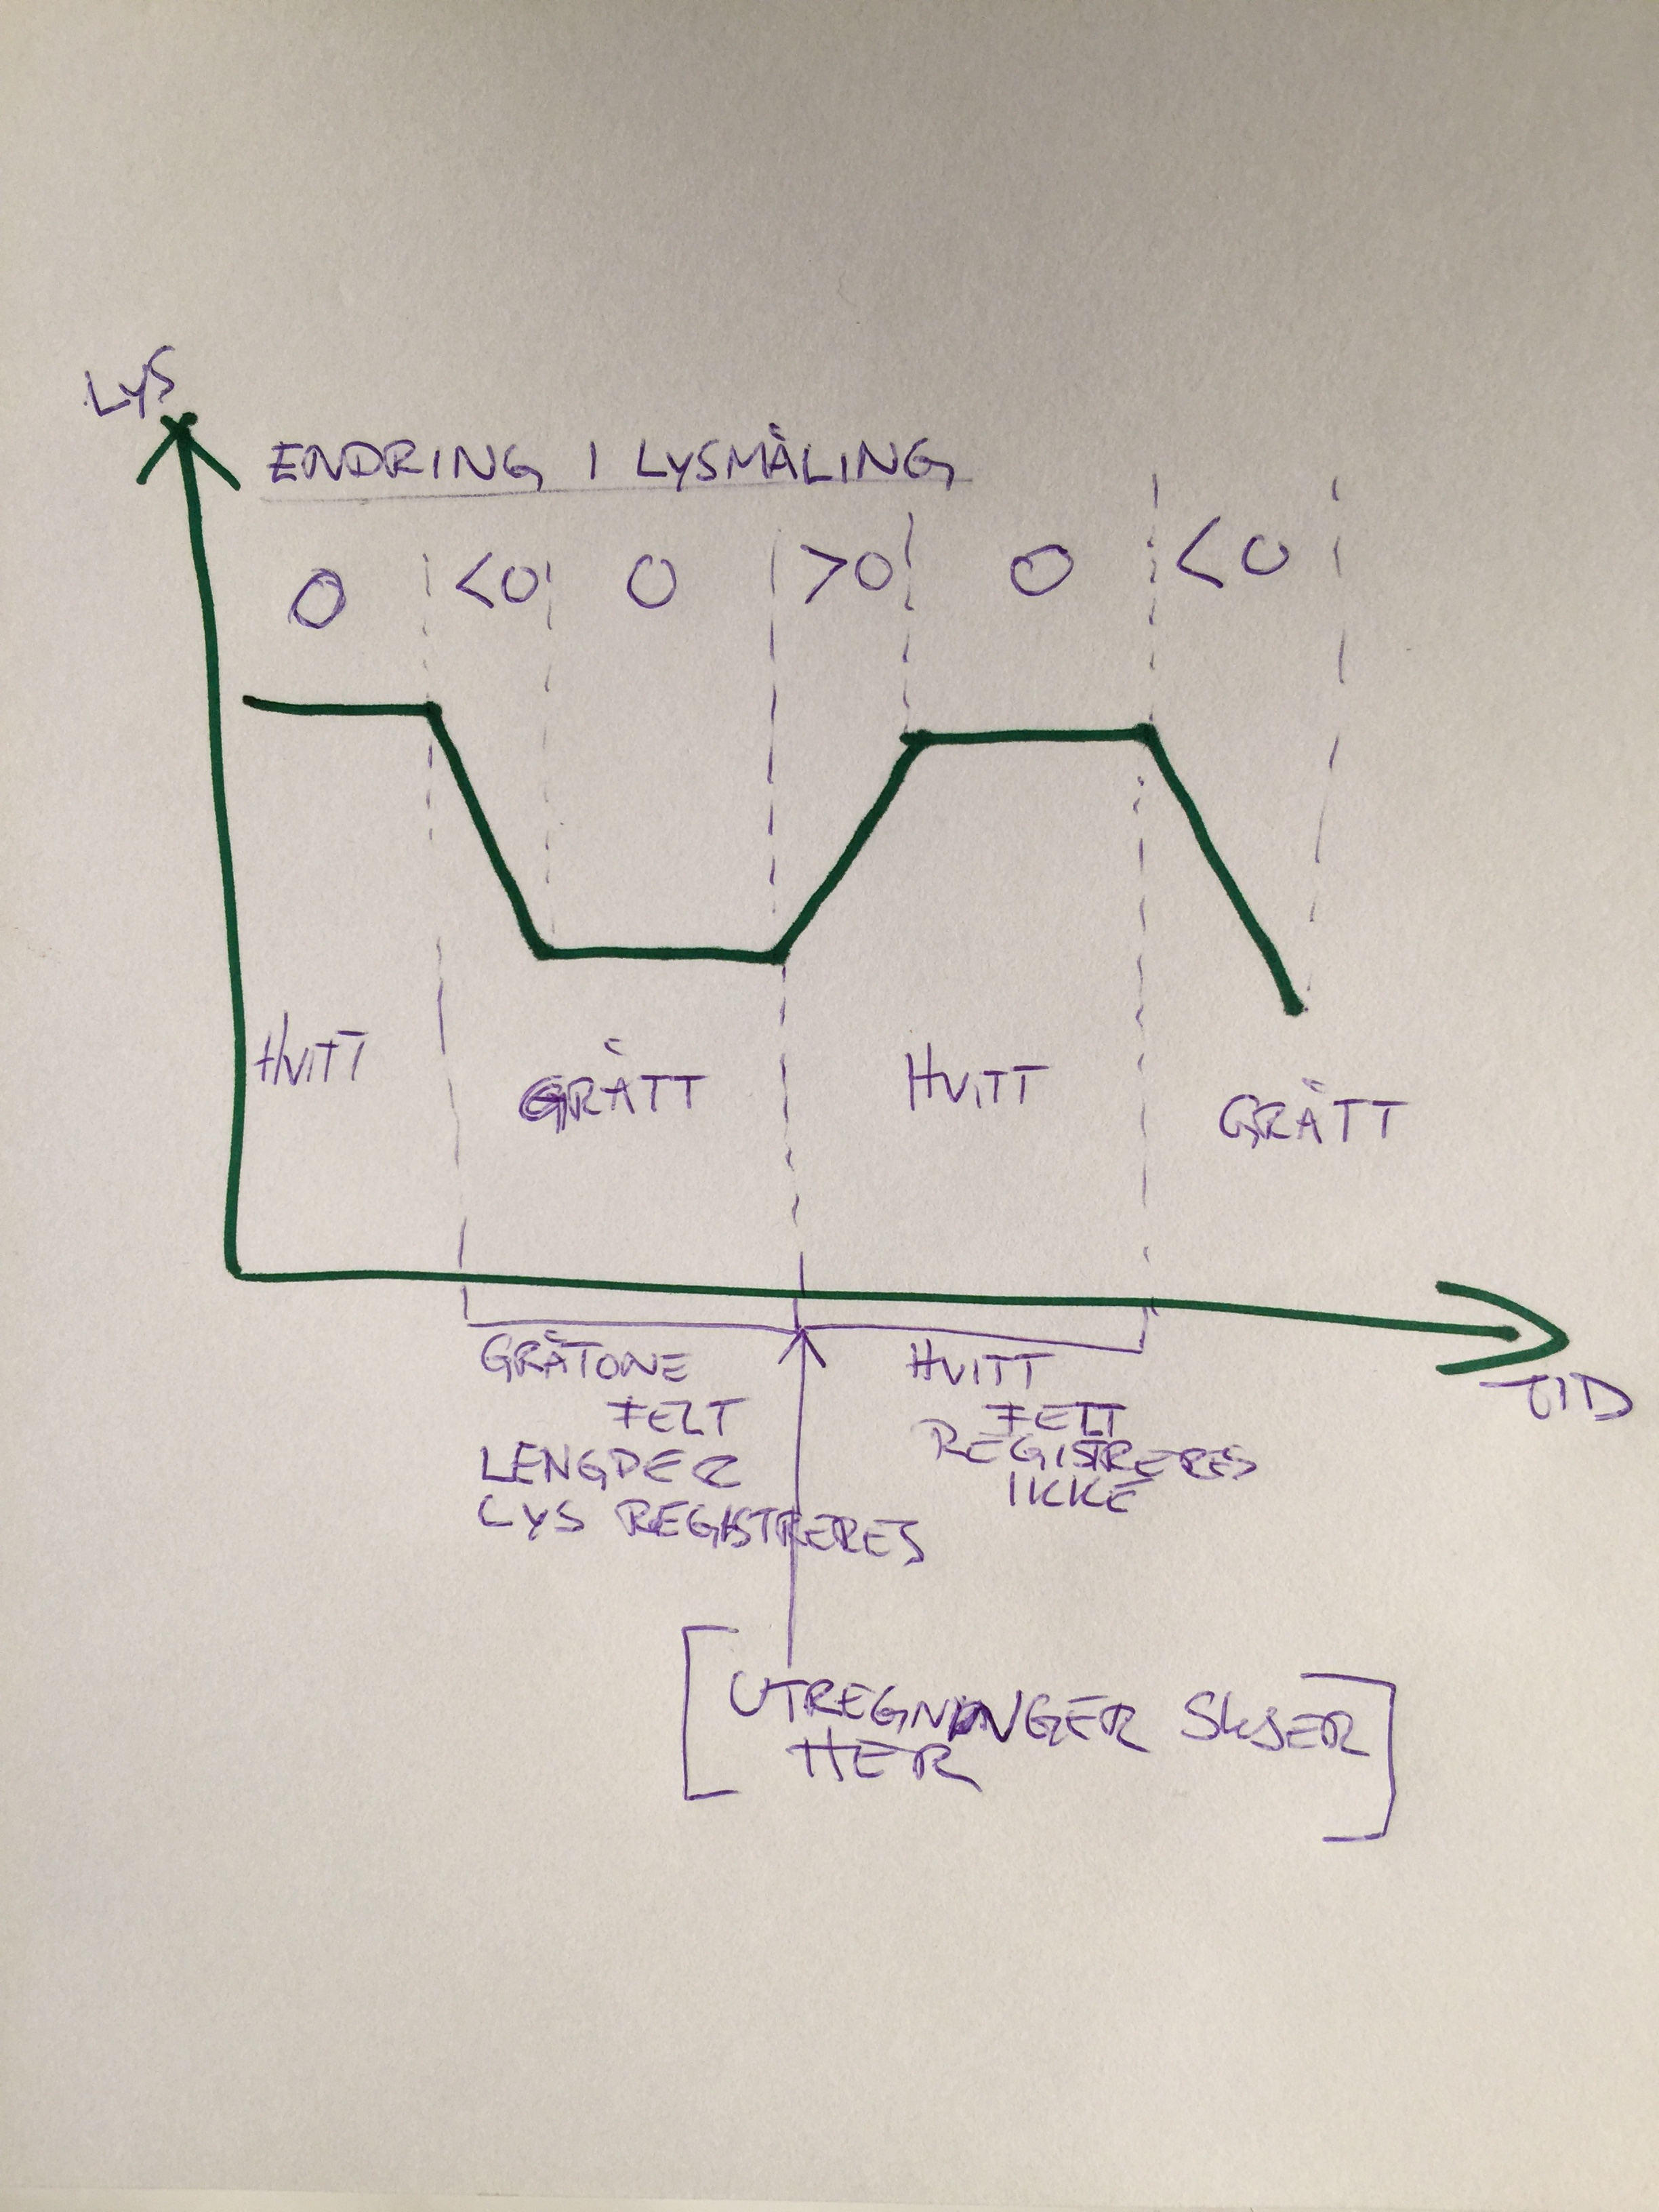 LYS
ENDRING I LYSMÅLING
0 <0 0 >0 0 <0
HVITT GRÅTT HVITT GRÅTT
TID
GRÅTONE
FELT
LENGDER
LYS REGISTRERES
HVITT
FELT
REGISTRERES
IKKE
[UTREGNINGER SKJER
HER]